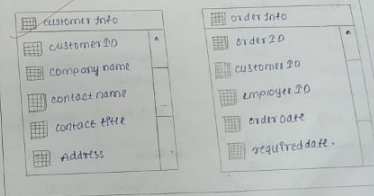 customer Info
customer ID
company name
contact name
contact title
Address
order Info
order ID
customer ID
employee ID
order date
required date.